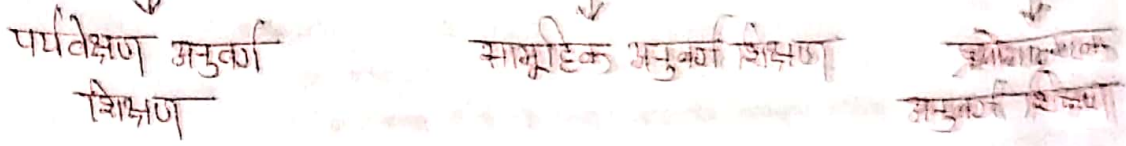 पर्यवेक्षण अनुवर्ग
शिक्षण
सामूहिक अनुवर्ग शिक्षण
अनुवर्ग शिक्षण